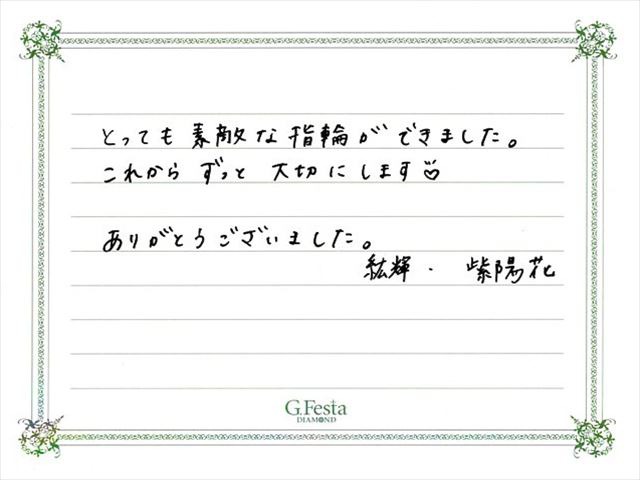 とっても 素敵な 指輪が できました。
これから ずっと 大切に します♡
ありがとうございました。
紘輝 . 紫陽花
G.Festa
DIAMOND